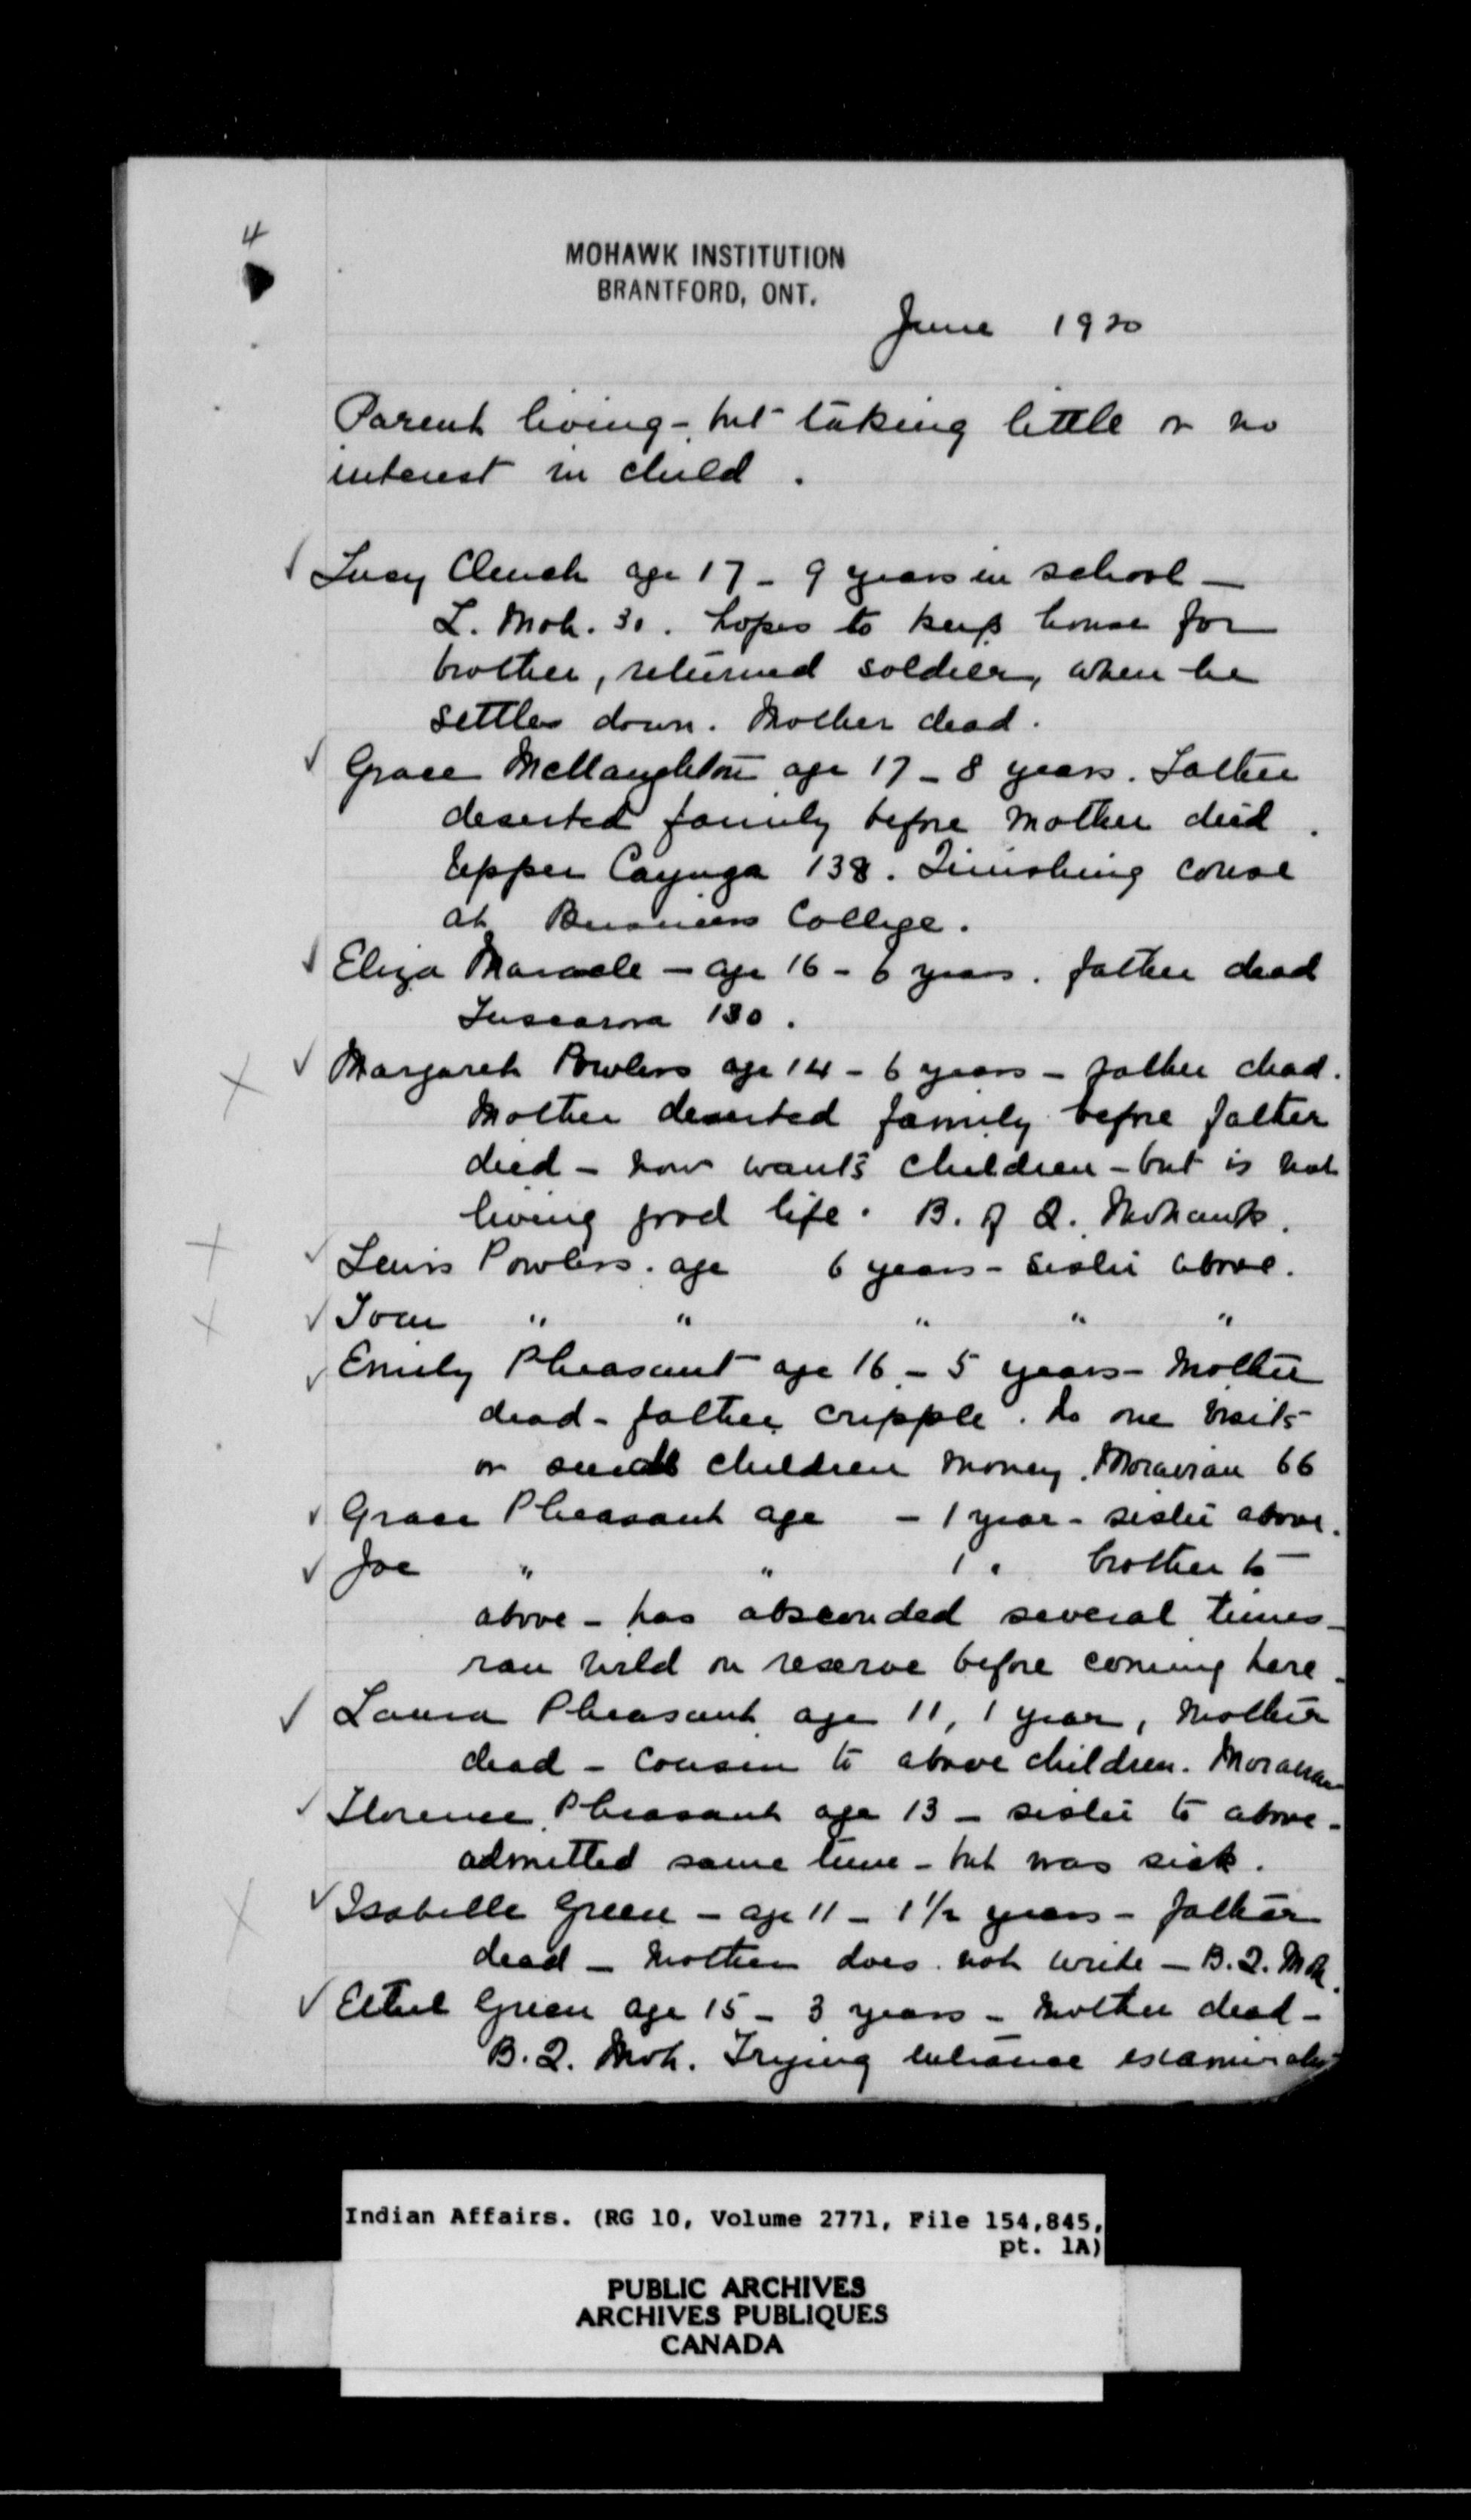 4
MOHAWK INSTITUTION
BRANTFORD, ONT.
June 1920
Parent living - but taking little or no
interest in child.
✓ Lucy Clench age 17 - 9 years in school -
L. Moh. 30. hopes to keep house for
brother, returned soldier, when he
settles down. Mother dead.
✓ Grace McNaughton age 17 - 8 years. Father
deserted family before mother died.
Upper Cayuga 138. Finishing course
at Business College.
✓ Eliza Maracle - age 16 - 6 years. father dead
Tuscarora 130.
X ✓ Margaret Powless age 14 - 6 years - father dead.
Mother deserted family before father
died - now wants children - but is not
living good life. B. of Q. Mohawk.
X ✓ Lewis Powless. age 6 years - sister above.
X ✓ Ivan " " " " "
✓ Emily Pheasant age 16 - 5 years - Mother
dead - father cripple. No one visits
or sends children money. Moravian 66
✓ Grace Pheasant age - 1 year - sister above.
✓ Joe " " 1 " brother to
above - has absconded several times -
ran wild on reserve before coming here -
✓ Laura Pheasant age 11, 1 year, Mother
dead - cousin to above children. Moravian
✓ Florence Pheasant age 13 - sister to above -
admitted same time - but was sick.
X ✓ Isabelle Green - age 11 - 1 1/2 years - father
dead - Mother does not write - B.Q. Moh.
✓ Ethel Green age 15 - 3 years - Mother dead -
B.Q. Moh. Trying entrance examination
Indian Affairs. (RG 10, Volume 2771, File 154,845,
pt. 1A)
PUBLIC ARCHIVES
ARCHIVES PUBLIQUES
CANADA